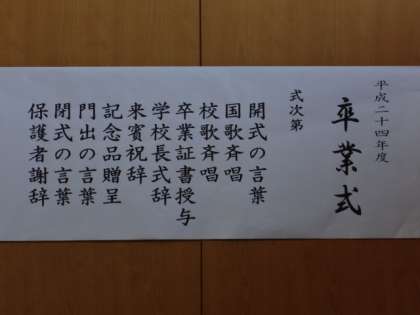 平成二十四年度
卒業式
式次第
開式の言葉
国歌斉唱
校歌斉唱
卒業証書授与
学校長式辞
来賓祝辞
記念品贈呈
門出の言葉
閉式の言葉
保護者謝辞